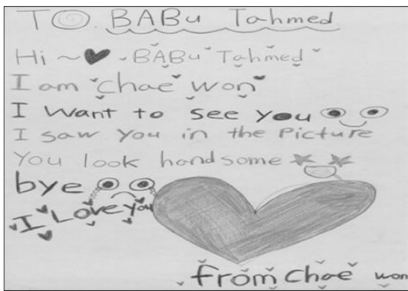 TO BABu Tahmed
Hi ~ BABu Tahmed
I am chae won
I want to see you
I saw you in the picture
You look handsome
bye
I Love you
from chae won